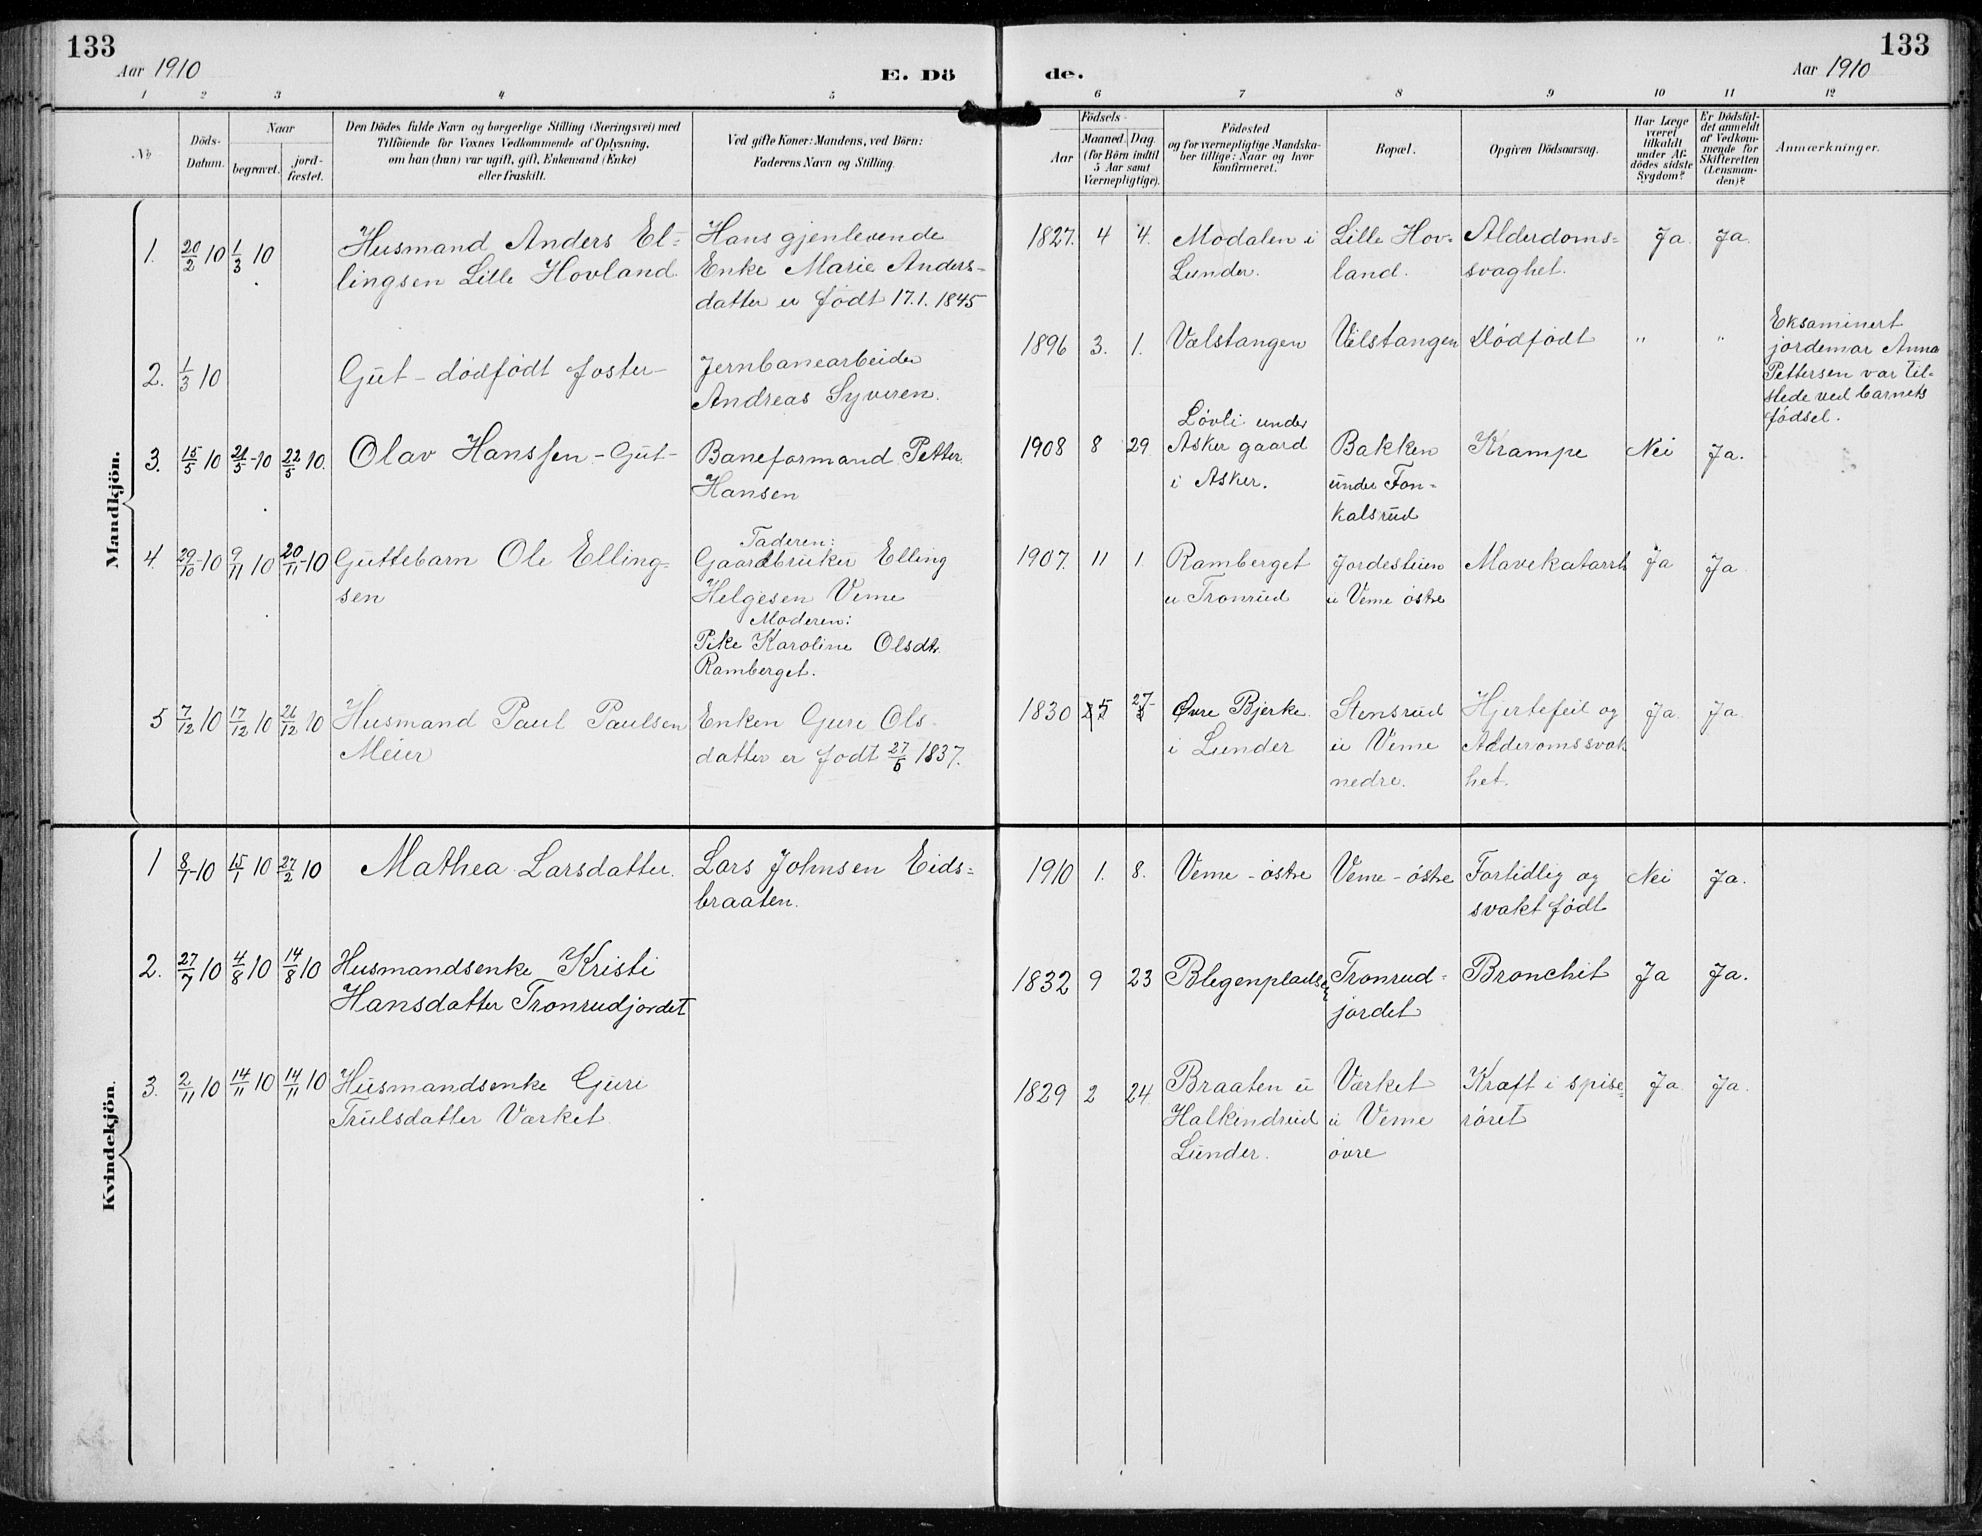 133
Aar 1910
E. Dö
de.
Aar 1910
133
1 2 3 4 5 6 7 8 9 10 11 12
No
Döds-
Datum.
Naar
begravet.
jord-
fæstet.
Den Dödes fulde Navn og borgerlige Stilling (Næringsvei) med
Tilföiende for Voxnes Vedkommende af Oplysning,
om han (hun) var ugift, gift, Enkemand (Enke)
eller fraskilt.
Ved gifte Koner: Mandens, ved Börn:
Faderens Navn og Stilling.
Födsels-
Aar
Maaned. Dag.
(for Börn indtil
5 Aar samt
Værnepligtige).
Födested
og for værnepligtige Mandska-
ber tillige: Naar og hvor
konfirmeret.
Bopæl.
Opgiven Dödsaarsag.
Har Læge
været
tilkaldt
under Af-
dödes sidste
Sygdom?
Er Dödsfal-
det anmeldt
af Vedkom-
mende for
Skifteretten
(Lensman-
den)?
Anmærkninger.
Mandkjön.
1. 20/2 10 1/3 10
Husmand Anders El-
lingsen Lille Hovland
Hans gjenlevende
Enke Marie Anders-
datter er født 17.1.1845
1827. 4 4.
Modalen i
Lunder.
Lille Hov-
land.
Alderdoms-
svaghet.
Ja Ja
2. 1/3 10
Gut - dödfödt foster -
Jernbanearbeider
Andreas Syveren.
1896 3. 1.
Vælstangen
Vælstangen
Dödfödt
" "
Eksaminert
jordemor Anna
Pettersen var til-
stede ved barnets
födsel.
3. 15/5 10 21/5-10 22/5 10.
Olav Hanssen - Gut -
Baneformand Petter
Hansen
1908 8 29
Lövli under
Asker gaard
i Asker.
Bakken
under Fon-
kalsrud
Krampe
Nei Ja.
4. 29/10-10 9/11 10 20/11-10
Guttebarn Ole Elling-
sen
Faderen:
Gaardbruker Elling
Helgesen Veme
Moderen:
Pike Karoline Olsdtr.
Ramberget.
1907. 11 1
Ramberget
u Tronrud
Jordesteien
u Veme östre
Mavekatarrh
Ja Ja
5 7/12 10 17/12 10 26/12 10
Husmand Paul Paulsen
Meier
Enken Guri Ols-
datter er født 27/6 1837.
1830 5 27
Øvre Bjerke
i Lunder
Stensrud
u Veme
nedre.
Hjertefeil og
Alderomssvak
het.
Ja. Ja.
Kvindekjön.
1 8/1-10 15/1 10 27/2 10
Mathea Larsdatter.
Lars Johnsen Eids-
braaten.
1910 1. 8.
Veme - östre
Veme - östre
Fortidlig og
svakt født
Nei Ja.
2. 27/7 10 4/8 10 14/8 10
Husmandsenke Kristi
Hansdatter Tronrudjordet
1832 9 23
Blegenpladsen
Tronrud-
jordet
Bronchit
Ja Ja.
3. 2/11 10 14/11 10 14/11 10
Husmandsenke Guri
Trulsdatter Værket.
1829 2 24.
Braaten u
Halkindrud
Lunder.
Værket
u Veme
övre
Kræft i spise-
röret
Ja Ja.